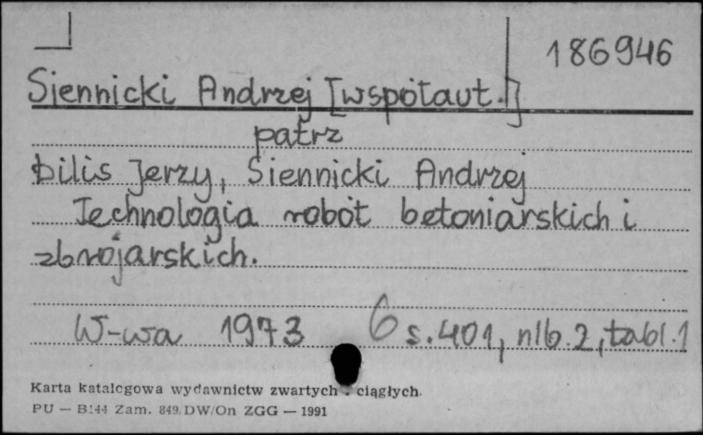 186946
Siennicki Andrzej [współaut.]
patrz
Dilis Jerzy, Siennicki Andrzej
Technologia robót betoniarskich i
zbrojarskich.
W-wa 1973 6 s. 401, nlb. 2, tabl. 1
Karta katalogowa wydawnictw zwartych i ciągłych.
PU — B144 Zam. 849 DW/On ZGG — 1991